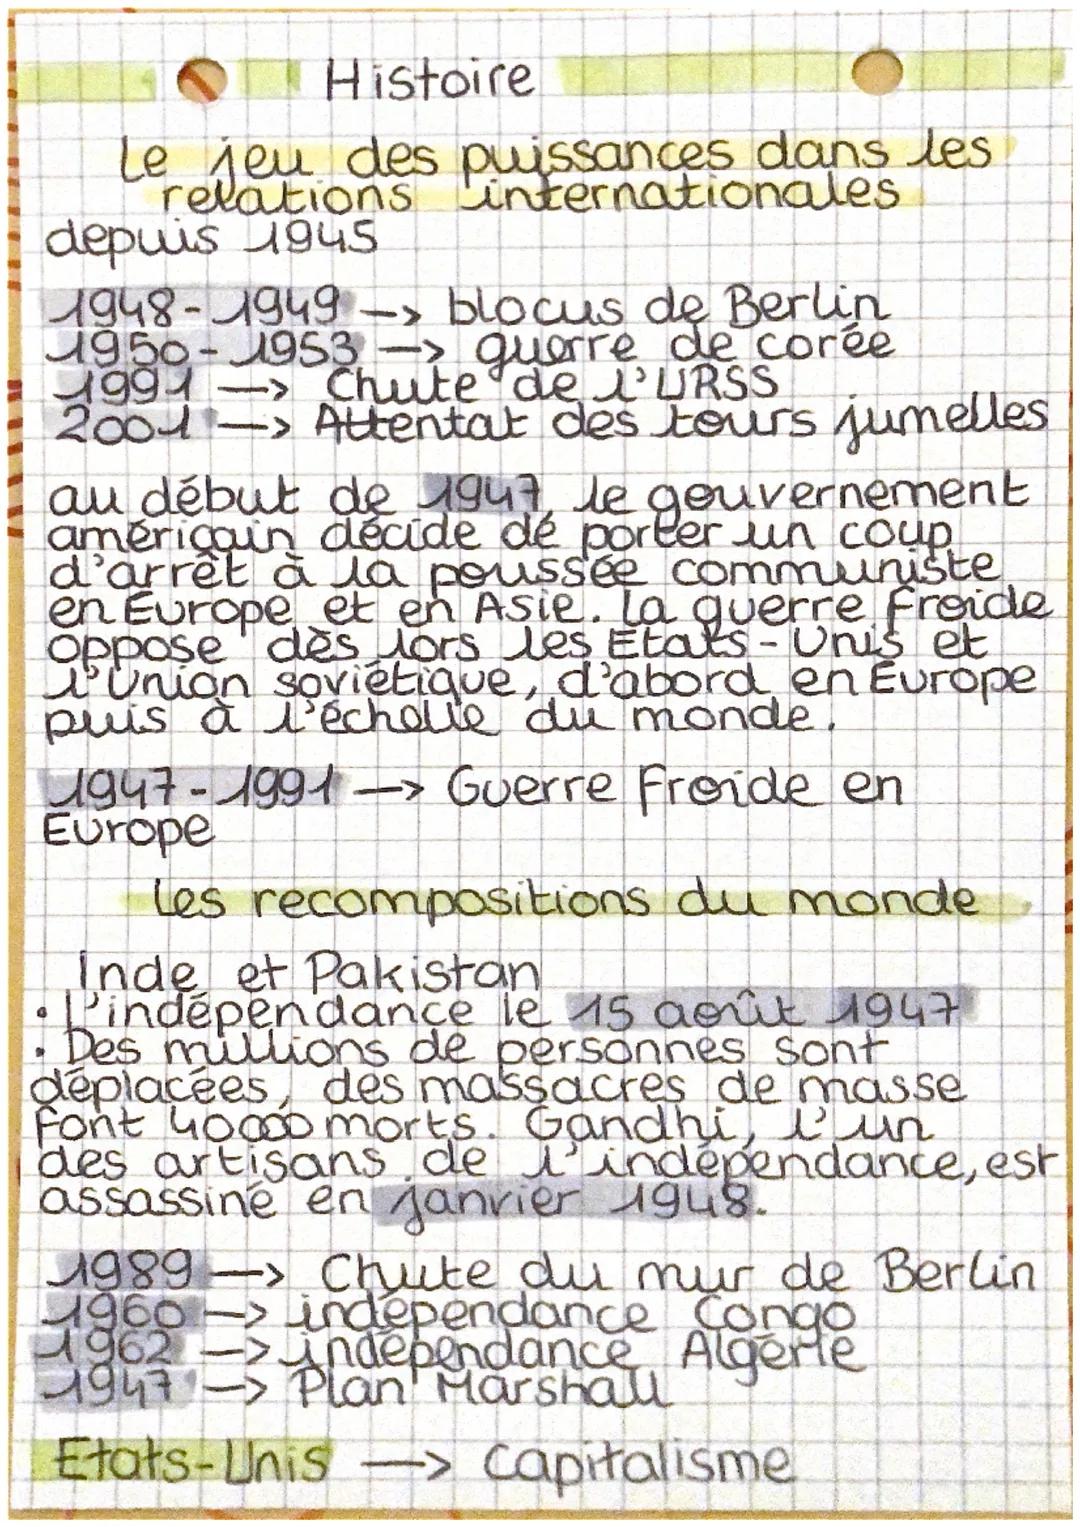 Histoire
Le jeu des puissances dans les
relations internationales
depuis 1945
1948-1949 -> blocus de Berlin
1950-1953 -> guerre de corée
1991 -> Chute de l'URSS
2001 -> Attentat des tours jumelles
au début de 1947, le gouvernement
américain décide de porter un coup
d'arrêt à la poussée communiste
en Europe et en Asie. La guerre froide
oppose dès lors les Etats-Unis et
l'Union soviétique, d'abord en Europe
puis à l'échelle du monde.
1947-1991 -> Guerre froide en
Europe
Les recompositions du monde
Inde et Pakistan
• L'indépendance le 15 août 1947
• Des millions de personnes sont
déplacées, des massacres de masse
font 40000 morts. Gandhi, l'un
des artisans de l'indépendance, est
assassiné en janvier 1948.
1989 -> Chute du mur de Berlin
1960 -> indépendance Congo
1962 -> indépendance Algérie
1947 -> Plan Marshall
Etats-Unis -> Capitalisme